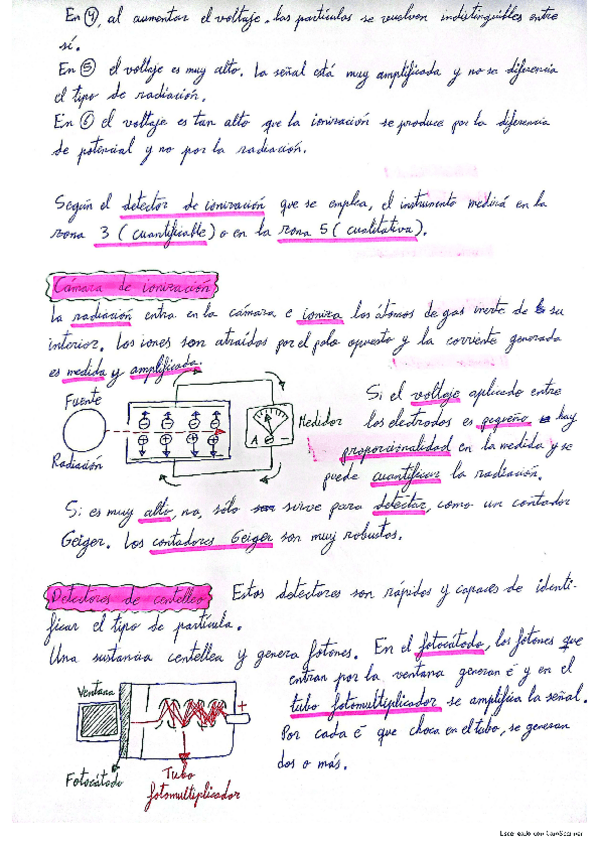 En ④, al aumentar el voltaje, las partículas se vuelven indistinguibles entre
sí.
En ⑤ el voltaje es muy alto. La señal está muy amplificada y no se diferencia
el tipo de radiación.
En ⑥ el voltaje es tan alto que la ionización se produce por la diferencia
de potencial y no por la radiación.
Según el detector de ionización que se emplea, el instrumento medirá en la
zona 3 (cuantificable) o en la zona 5 (cualitativa).
Cámara de ionización
La radiación entra en la cámara e ioniza los átomos de gas inerte de su
interior. Los iones son atraídos por el polo opuesto y la corriente generada
es medida y amplificada.
Fuente
Radiación
A
Medidor
Si el voltaje aplicado entre
los electrodos es pequeño hay
proporcionalidad en la medida y se
puede cuantificar la radiación.
Si es muy alto, no, sólo sirve para detectar, como un contador
Geiger. Los contadores Geiger son muy robustos.
Detectores de centelleo Estos detectores son rápidos y capaces de identi-
ficar el tipo de partícula.
Una sustancia centellea y genera fotones. En el fotocátodo, los fotones que
entran por la ventana generan e⁻ y en el
tubo fotomultiplicador se amplifica la señal.
Por cada e⁻ que choca en el tubo, se generan
dos o más.
Ventana
+
Fotocátodo
Tubo
fotomultiplicador
Escaneado con CamScanner